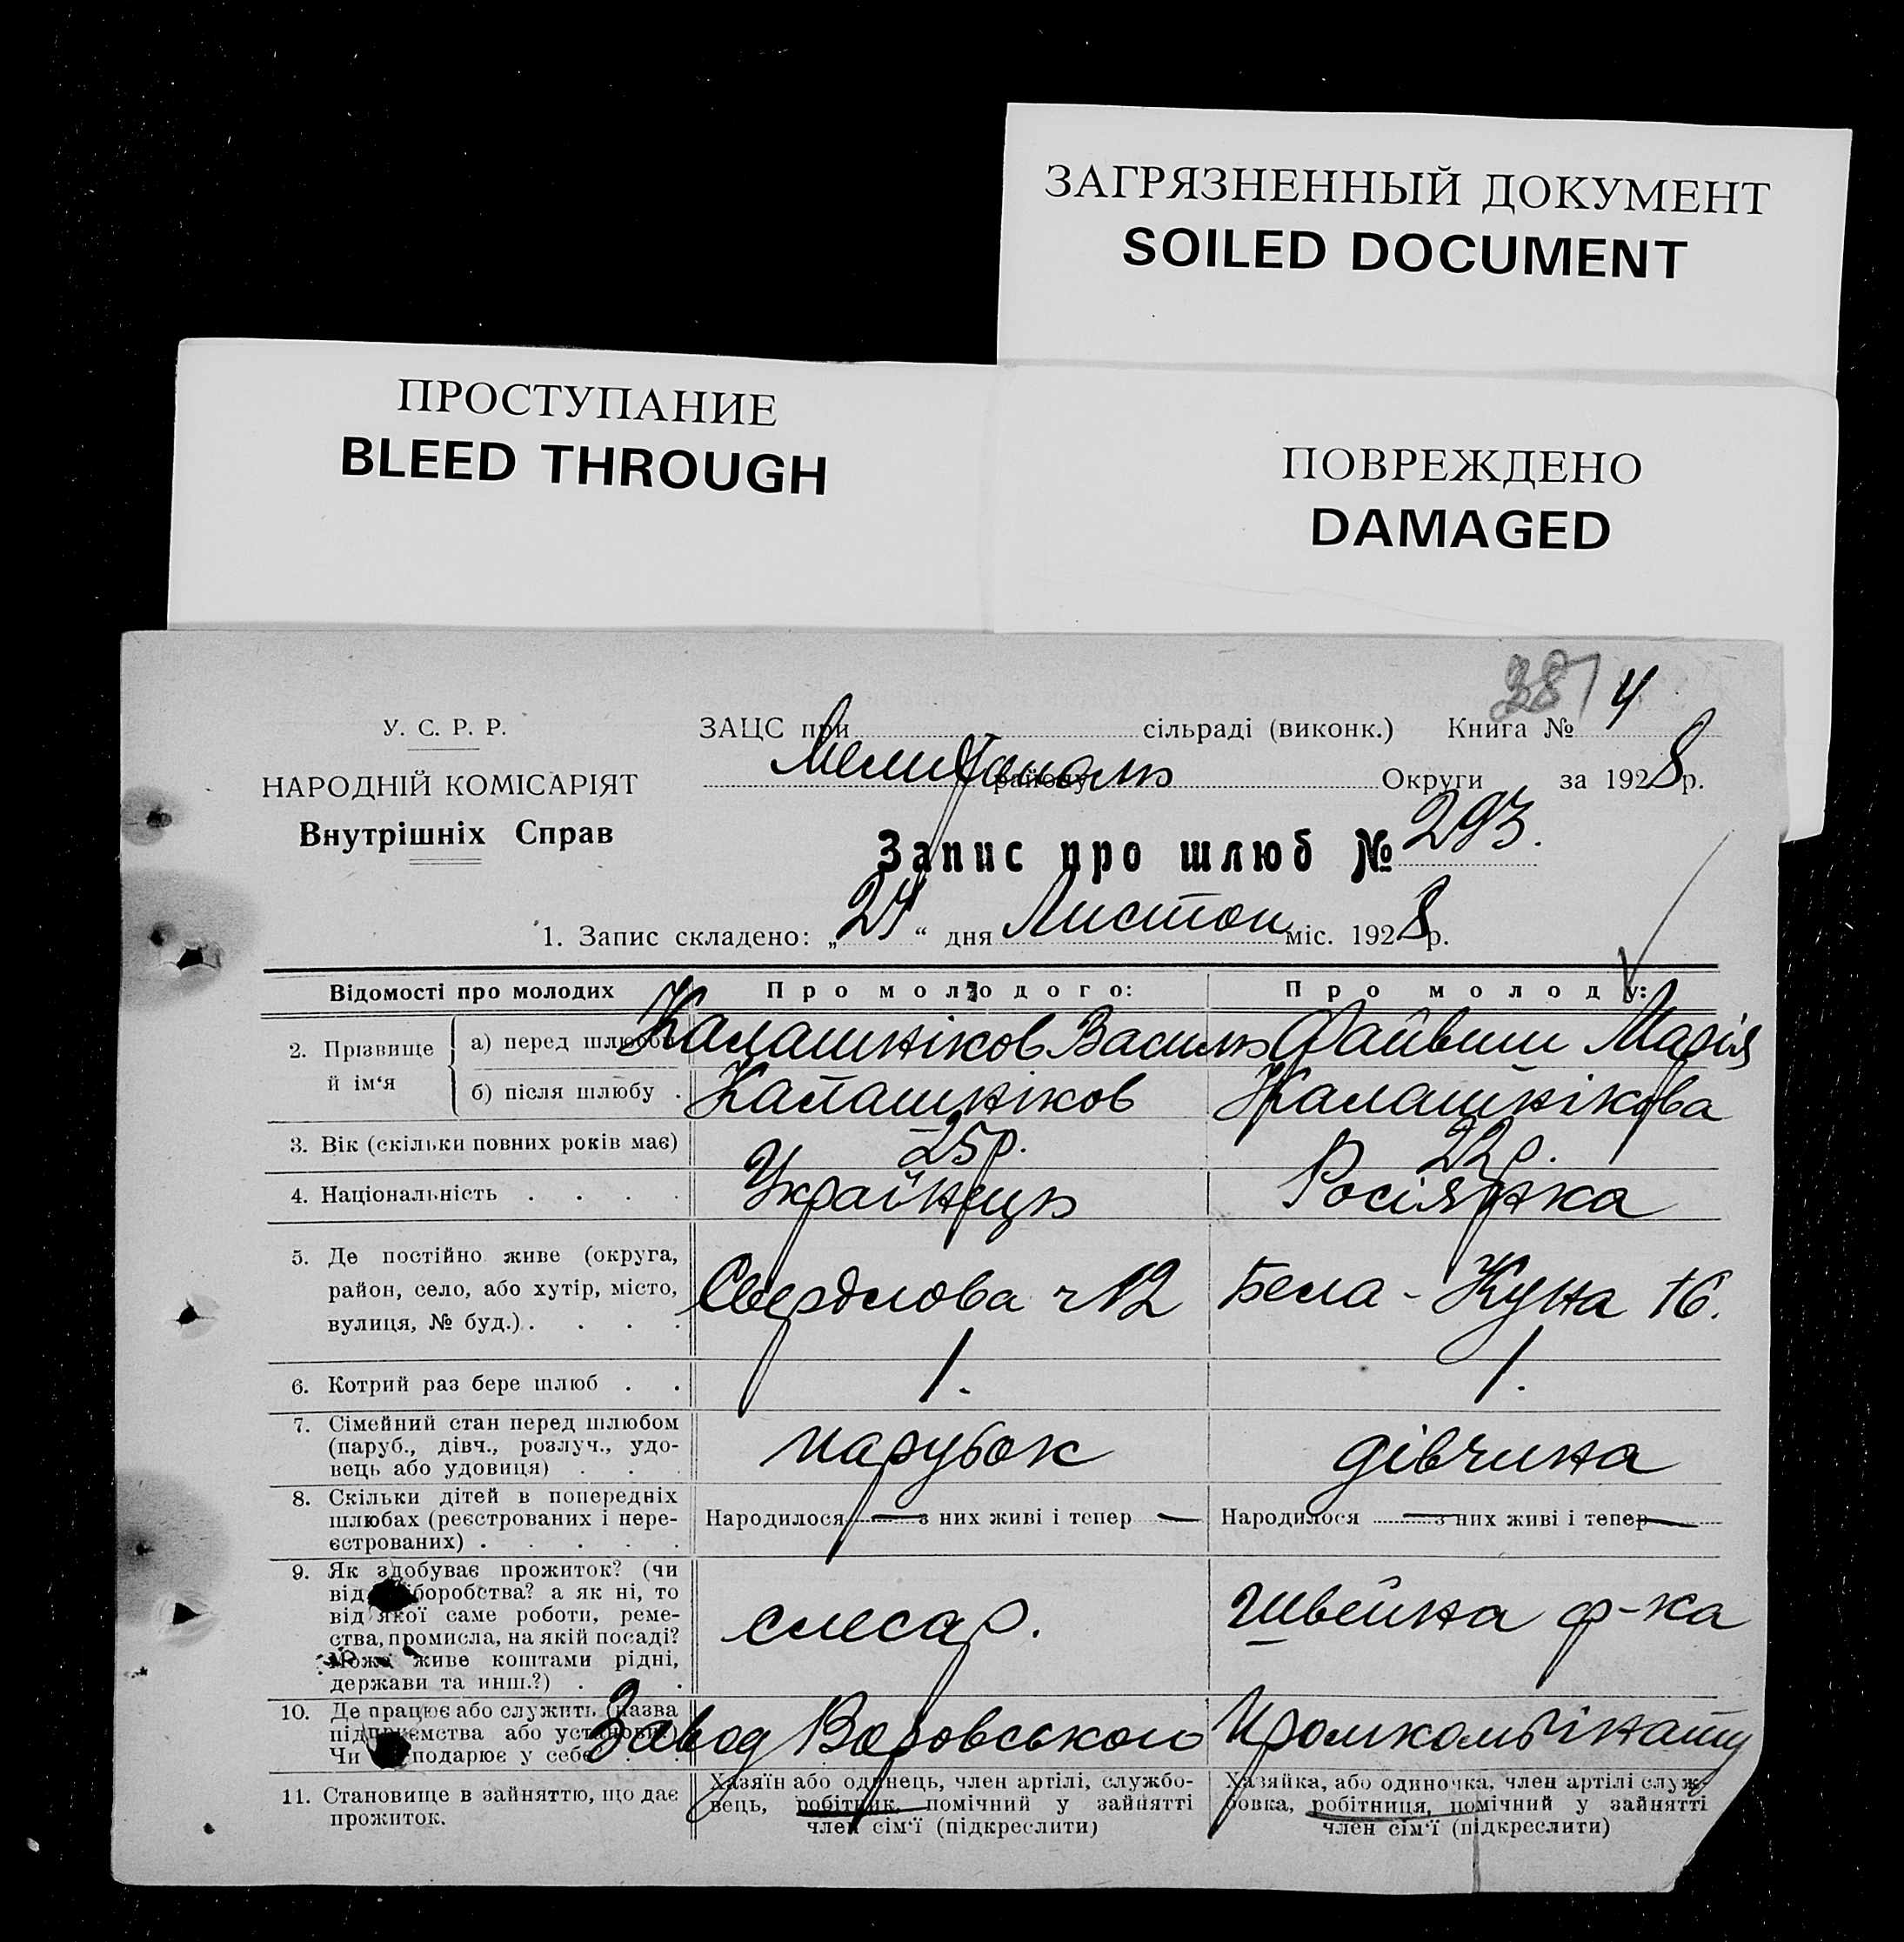 ЗАГРЯЗНЕННЫЙ ДОКУМЕНТ
SOILED DOCUMENT
ПРОСТУПАНИЕ
BLEED THROUGH
ПОВРЕЖДЕНО
DAMAGED
387 4
У. С. Р. Р.
НАРОДНІЙ КОМІСАРІЯТ
Внутрішніх Справ
ЗАЦС при сільраді (виконк.) Книга №
Мелитополь району Округи за 1928 р.
Запис про шлюб № 293.
1. Запис складено: „27“ дня Листоп міс. 1928 р.
Відомості про молодих
Про молодого:
Про молоду:
2. Прізвище й ім‘я
а) перед шлюбом
Калашніков Василь
Файвиш Марія
б) після шлюбу .
Калашніков
Калашнікова
3. Вік (скільки повних років має)
25 р.
22 р.
4. Національність . . . .
Українець
Росіянка
5. Де постійно живе (округа,
район, село, або хутір, місто,
вулиця, № буд.) . . . .
Свердлова ч 12
Бела - Куна 16.
6. Котрий раз бере шлюб . .
1.
1.
7. Сімейний стан перед шлюбом
(паруб., дівч., розлуч., удо-
вець або удовиця) . . .
парубок
дівчина
8. Скільки дітей в попередніх
шлюбах (реєстрованих і нере-
єстрованих) . . . . .
Народилося — з них живі і тепер —
Народилося — з них живі і тепер —
9. Як здобуває прожиток? (чи
від боробства? а як ні, то
від якої саме роботи, реме-
ства, промисла, на якій посаді?
Може живе коштами рідні,
держави та инш.?) . .
слесар.
Швейна ф-ка
10. Де працює або служить (назва
підприємства або установи)
Чи подарює у себе
Завод Воровського
Промкомбінату
11. Становище в зайняттю, що дає
прожиток.
Хазяїн або одинець, член артілі, службо-
вець, робітник, помічний у зайнятті
член сім‘ї (підкреслити)
Хазяйка, або одиночка, член артілі служ-
бовка, робітниця, помічний у зайнятті
член сім‘ї (підкреслити)